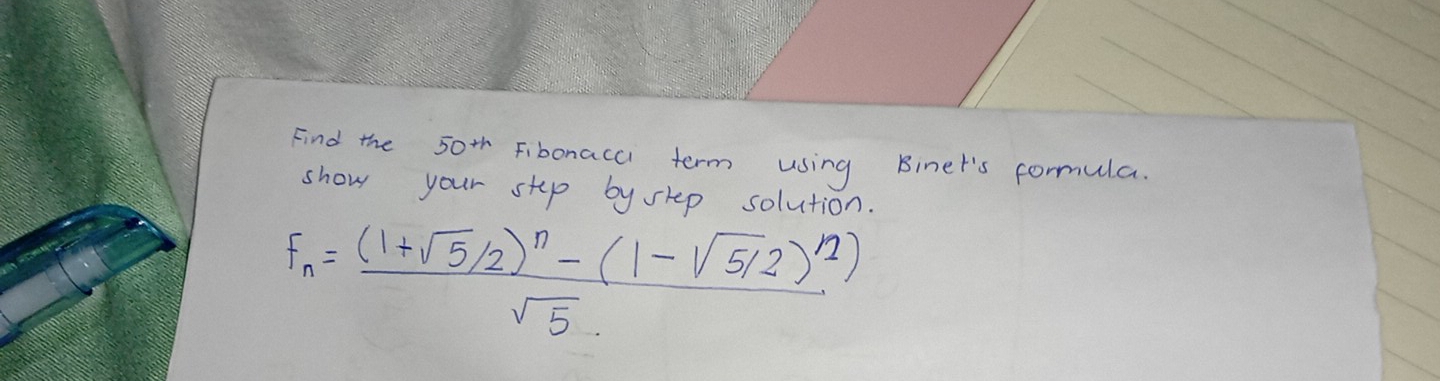 Find the 50th Fibonacci term using Binet's formula.
show your step by step solution.
Fn = (1+√5/2)ⁿ - (1-√5/2)ⁿ)
√5.